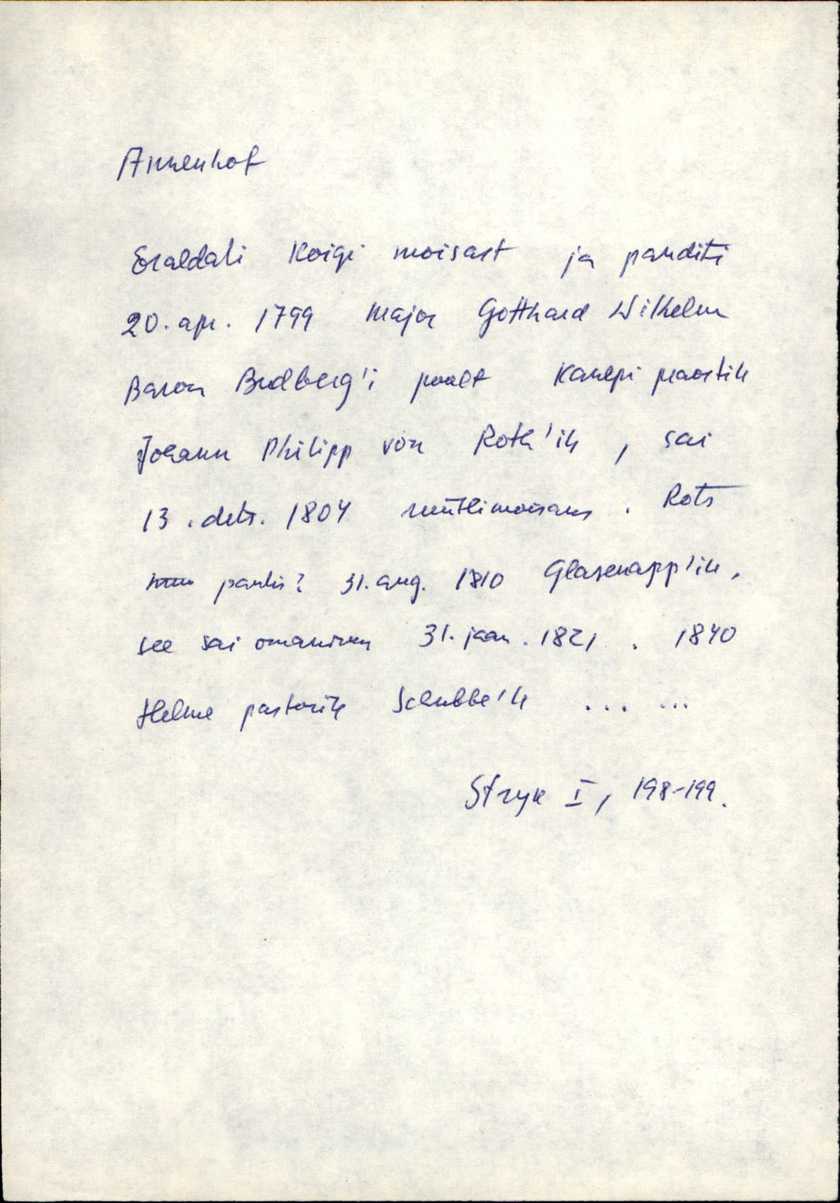 Annenhof
Eraldati Koigi moisast ja panditi
20. apr. 1799 major Gotthard Wilhelm
Baron Budberg'i poolt Kanepi praostile
Johann Philipp von Roth'ile, sai
13. dets. 1804 rüütlimoisaks. Roth
pantis? 31. aug. 1810 Glasenapp'ile,
see sai omanikuks 31. jaan. 1821. 1840
Helme pastorile Schubbe'le ... ...
Stryk I, 198-199.